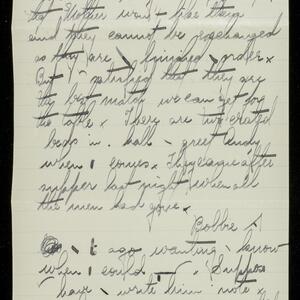 that Mother won't like them
and they cannot be exchanged
as they are finished order x
But I satisfied that they are
the best match we can get for
the table x There are two crated
beds in hall greet Andy
when I comes x They came after
supper last night when all
the men had gone x
Bobbie
ago wanting know
when I could Suppose
I have write him note x